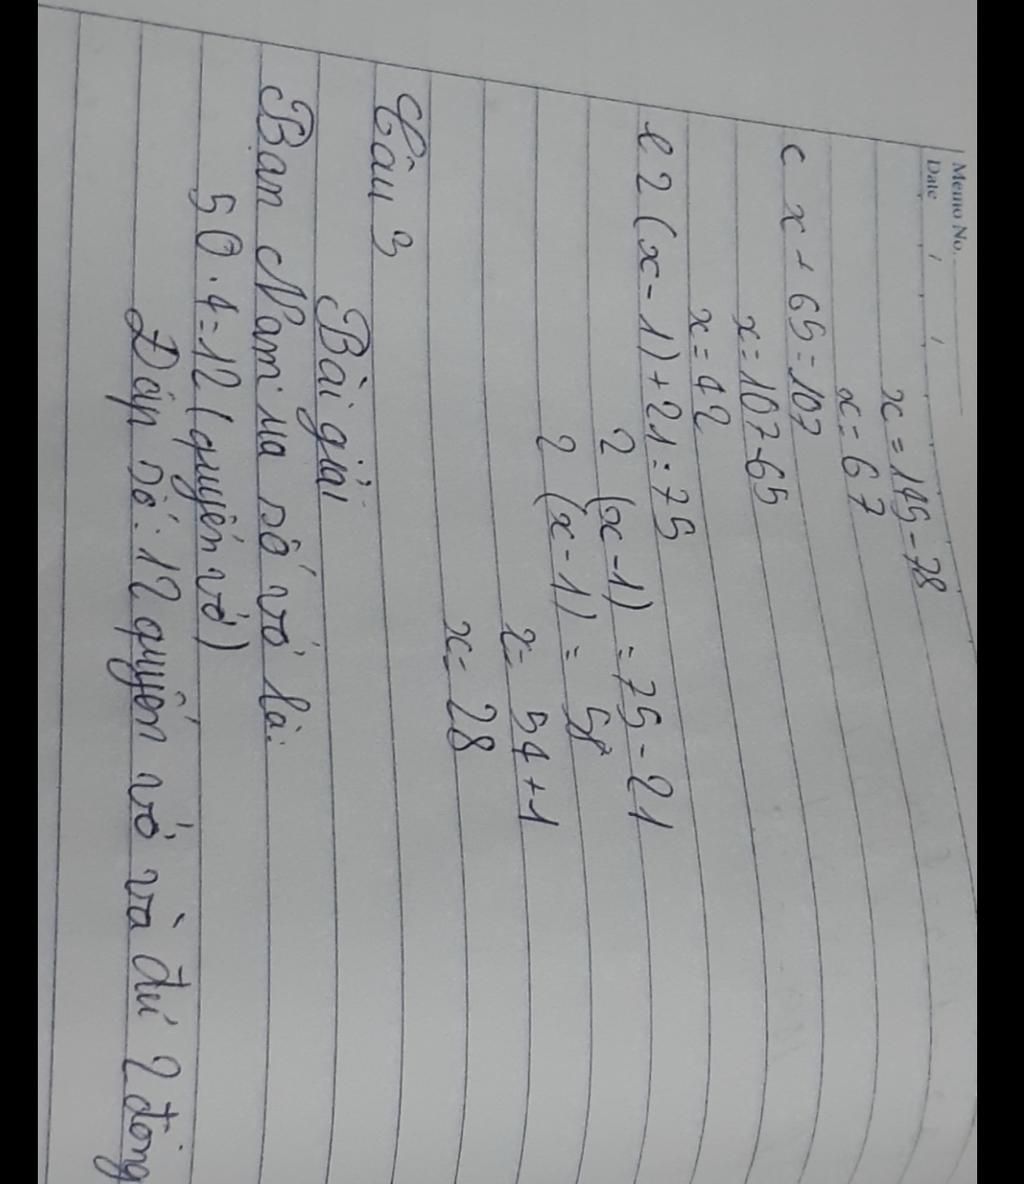 Memo No.
Date / /
x = 145 - 78
x = 67
c x + 65 = 107
x = 107 - 65
x = 42
e 2 (x - 1) + 21 = 75
2 (x - 1) = 75 - 21
2 (x - 1) = 58
x = 54 + 1
x = 28
Câu 3
Bài giải
Bạn Nam ma số vở là:
50 . 4 = 12 (quyển vở)
Đáp số: 12 quyển vở và dư 2 đồng